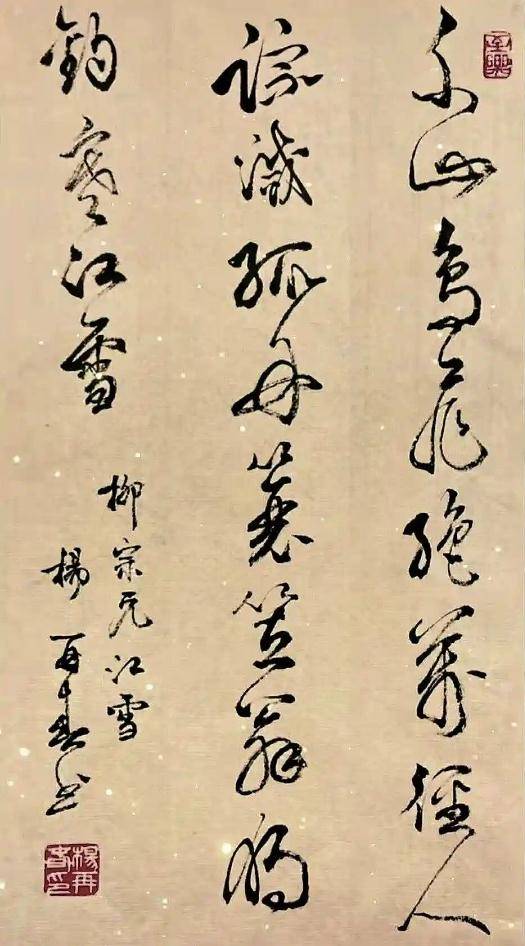 千山鳥飛絕萬徑人
踪滅孤舟蓑笠翁獨
釣寒江雪
柳宗元江雪
楊再春书
楊再春印